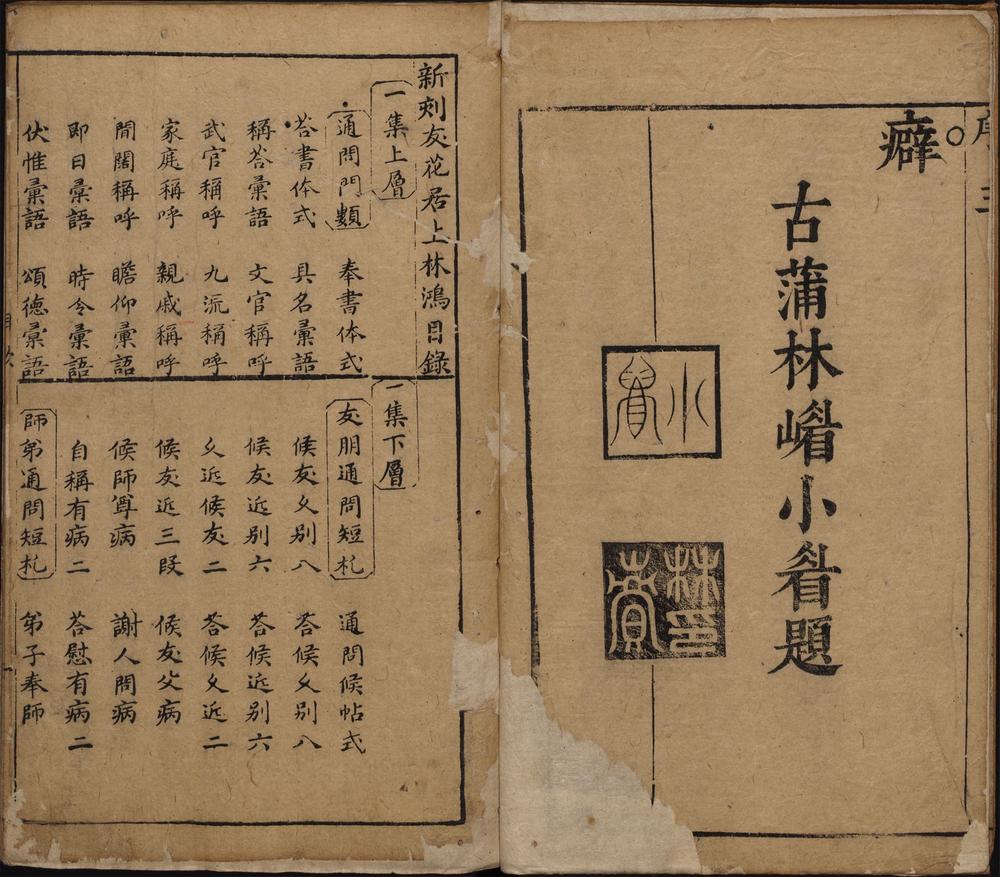 癖
古蒲林嵋小睂題
小睂
新刻友花居上林鴻目錄
一集上層
通問門類　奉書体式
荅書体式　具名彙語
稱荅彙語　文官稱呼
武官稱呼　九流稱呼
家庭稱呼　親戚稱呼
間闊稱呼　瞻仰彙語
即日彙語　時令彙語
伏惟彙語　頌德彙語
一集下層
友朋通問短札　通問候帖式
候友久別八　荅候久別八
候友近別六　荅候近別六
久近候友二　荅候久近二
候友近三段　候友父病
候師尊病　謝人問病
自稱有病二　荅慰有病二
師弟通問短札　弟子奉師
目次